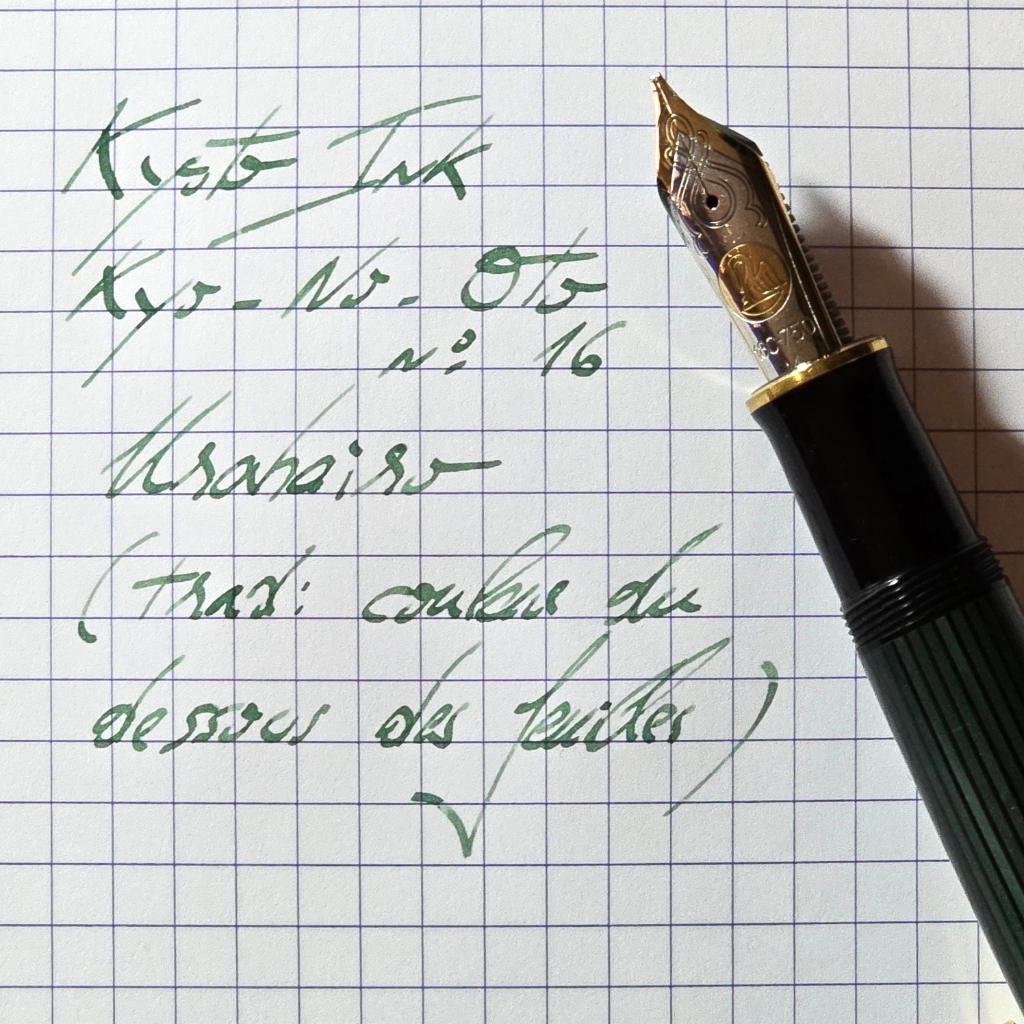 Kyoto Ink
Kyo-No-Oto
n° 16
Urahairo
(trad: couleur du
dessous des feuilles)
18C-750